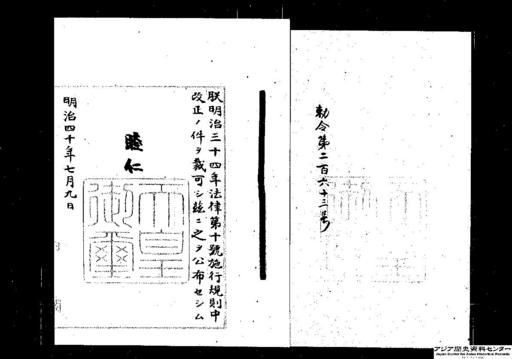 勅令第二百六十三号
朕明治三十四年法律第十號施行規則中
改正ノ件ヲ裁可シ茲ニ之ヲ公布セシム
睦仁
天皇
御璽
明治四十年七月九日
アジア歴史資料センター
Japan Center for Asian Historical Records